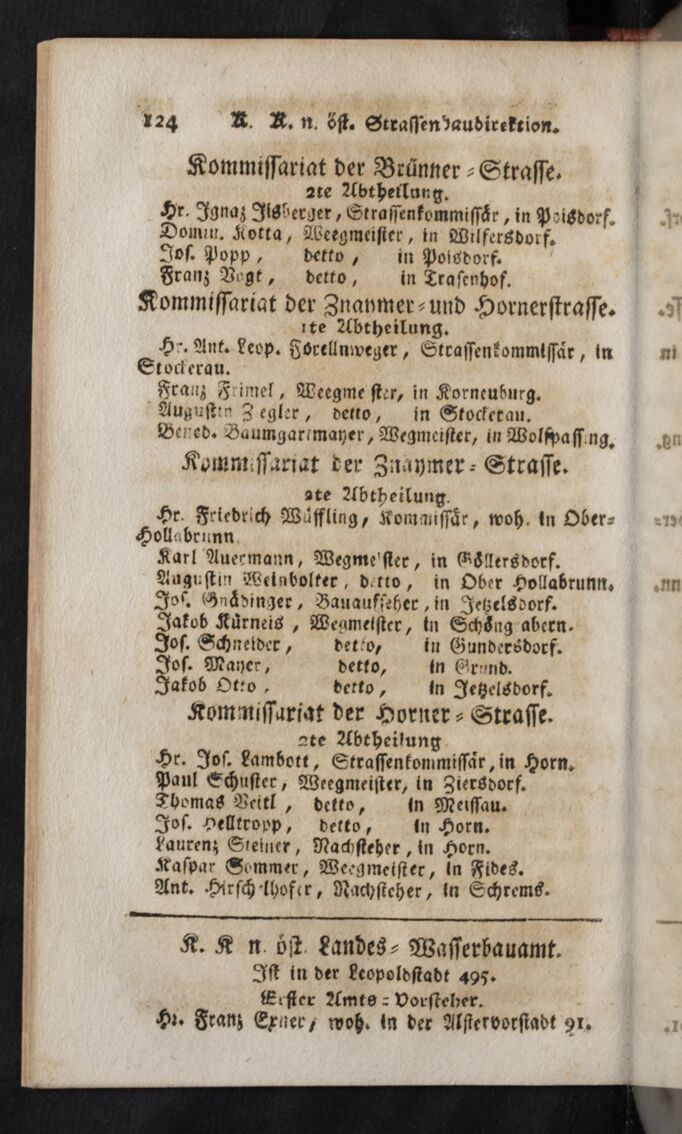 124 K. K. n. öst. Strassenbaudirektion.
Kommissariat der Brünner-Strasse.
2te Abtheilung.
Hr. Ignaz Ilsberger, Strassenkommissär, in Poisdorf.
Domin. Kotta, Weegmeister, in Wilfersdorf.
Jos. Popp, detto, in Poisdorf.
Franz Vogt, detto, in Trasenhof.
Kommissariat der Znaymer-und Hornerstrasse.
1te Abtheilung.
Hr. Ant. Leop. Forellnweger, Strassenkommissär, in
Stockerau.
Franz Frimel, Weegmeister, in Korneuburg.
Augustin Ziegler, detto, in Stockerau.
Bened. Baumgartmayer, Wegmeister, in Wolfpassing.
Kommissariat der Znaymer-Strasse.
2te Abtheilung.
Hr. Friedrich Wüffling, Kommissär, woh. in Ober-
Hollabrunn.
Karl Auermann, Wegmeister, in Göllersdorf.
Augustin Weinbolter, detto, in Ober Hollabrunn.
Jos. Gnädinger, Bauaufseher, in Jetzelsdorf.
Jakob Kürneis, Wegmeister, in Schöngrabern.
Jos. Schneider, detto, in Gundersdorf.
Jos. Mayer, detto, in Grund.
Jakob Otto, detto, in Jetzelsdorf.
Kommissariat der Horner-Strasse.
2te Abtheilung
Hr. Jos. Lambott, Strassenkommissär, in Horn.
Paul Schuster, Weegmeister, in Ziersdorf.
Thomas Veitl, detto, in Meissau.
Jos. Helltropp, detto, in Horn.
Laurenz Steiner, Nachsteher, in Horn.
Kaspar Sommer, Weegmeister, in Fides.
Ant. Hirschelhofer, Nachsteher, in Schrems.
K. K n. öst. Landes-Wasserbauamt.
Ist in der Leopoldstadt 495.
Erster Amts-Vorsteher.
Hr. Franz Exner, woh. in der Alstervorstadt 91.